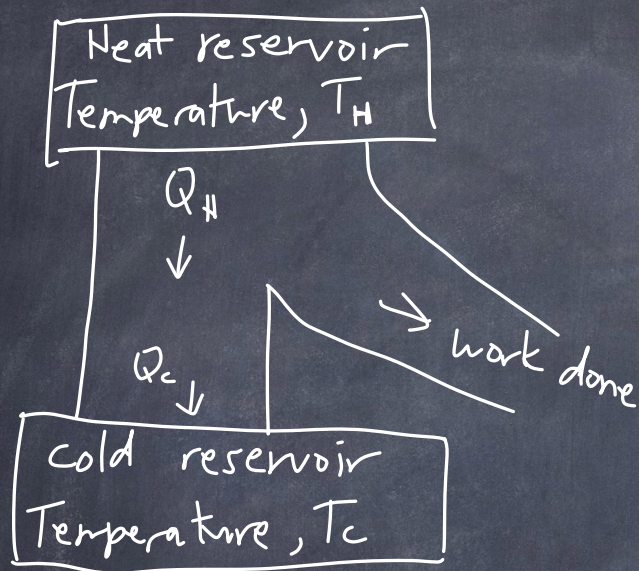 Heat reservoir
Temperature, T_H
Q_H
↓
→
work done
Q_c
↓
cold reservoir
Temperature, Tc